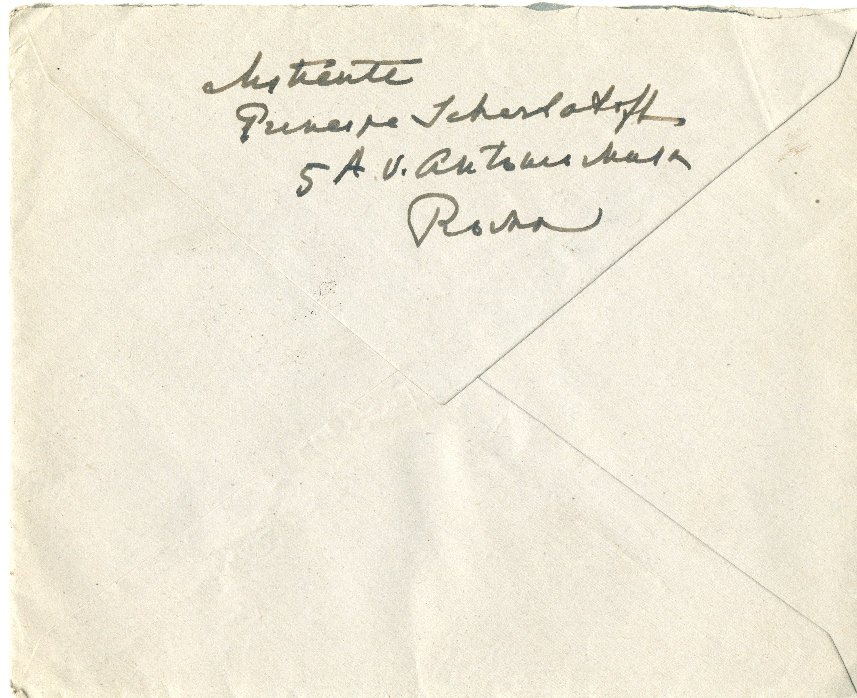 Mittente
Principe Scherbatoff
5 A V. Antonio Musa
Roma